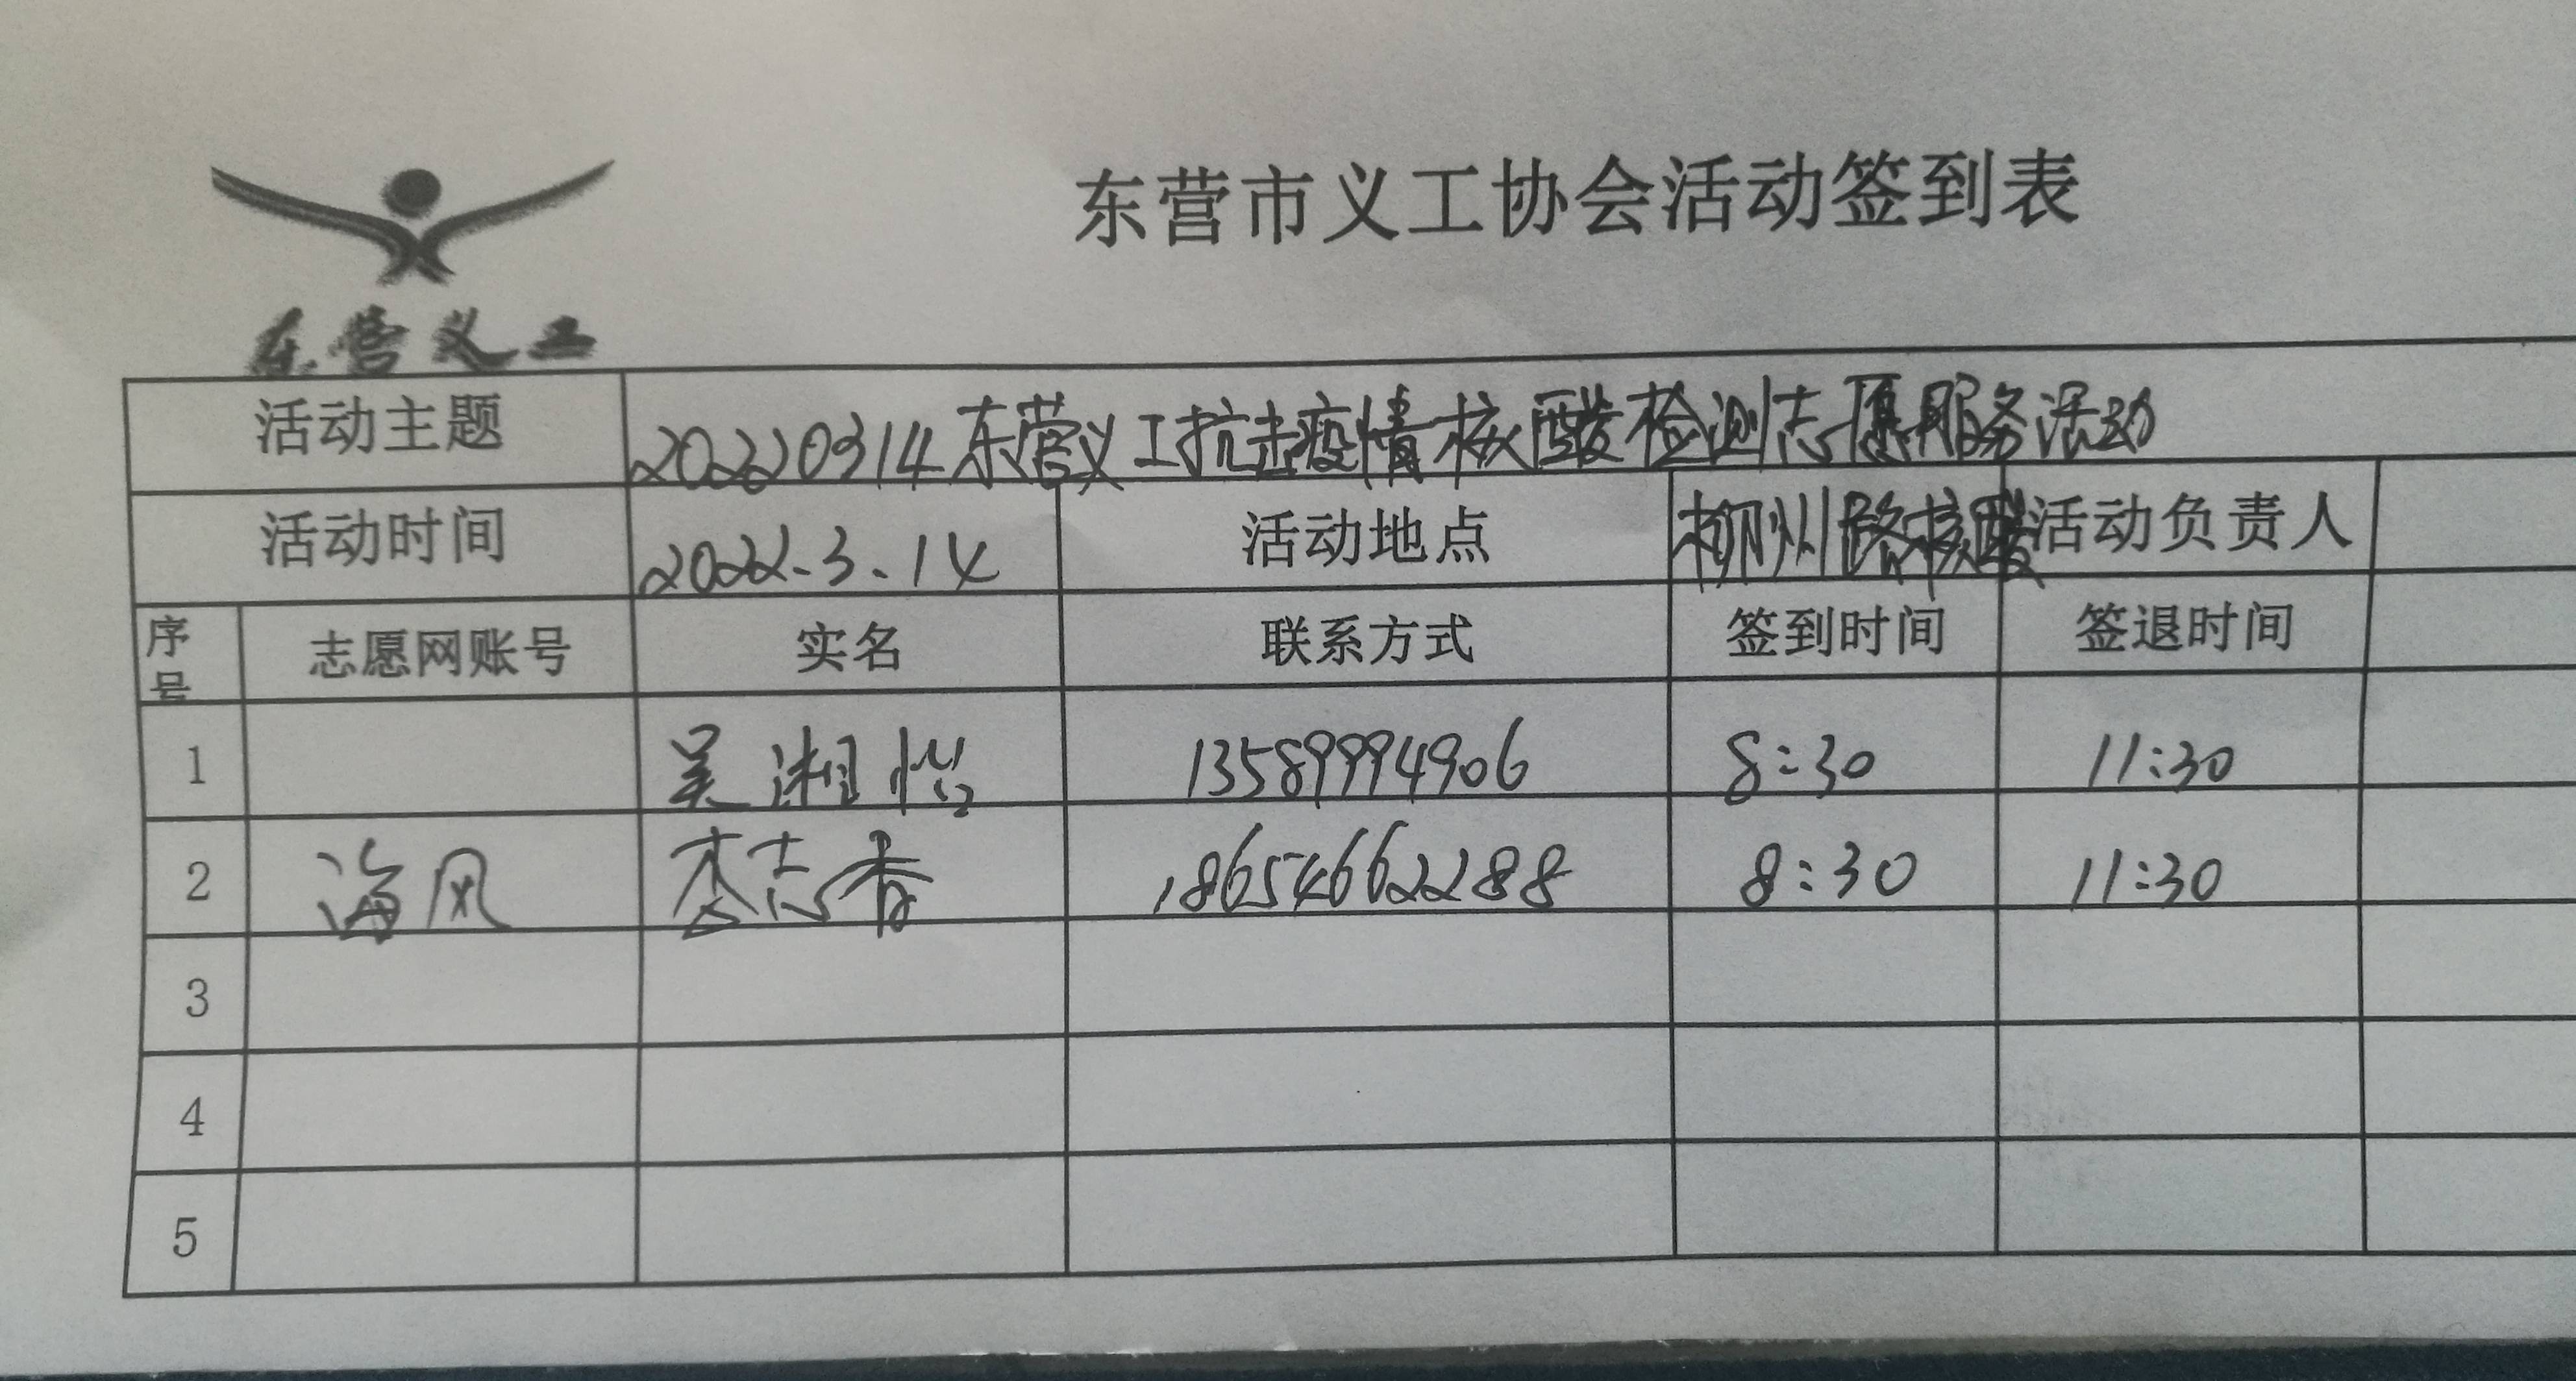 东营市义工协会活动签到表
东营义工
活动主题 20220314东营义工抗击疫情核酸检测志愿服务活动
活动时间 2022.3.14 活动地点 柳州路核酸 活动负责人
序号 志愿网账号 实名 联系方式 签到时间 签退时间
1 吴湘怡 13589994906 8:30 11:30
2 海风 李志香 18654662288 8:30 11:30
3
4
5